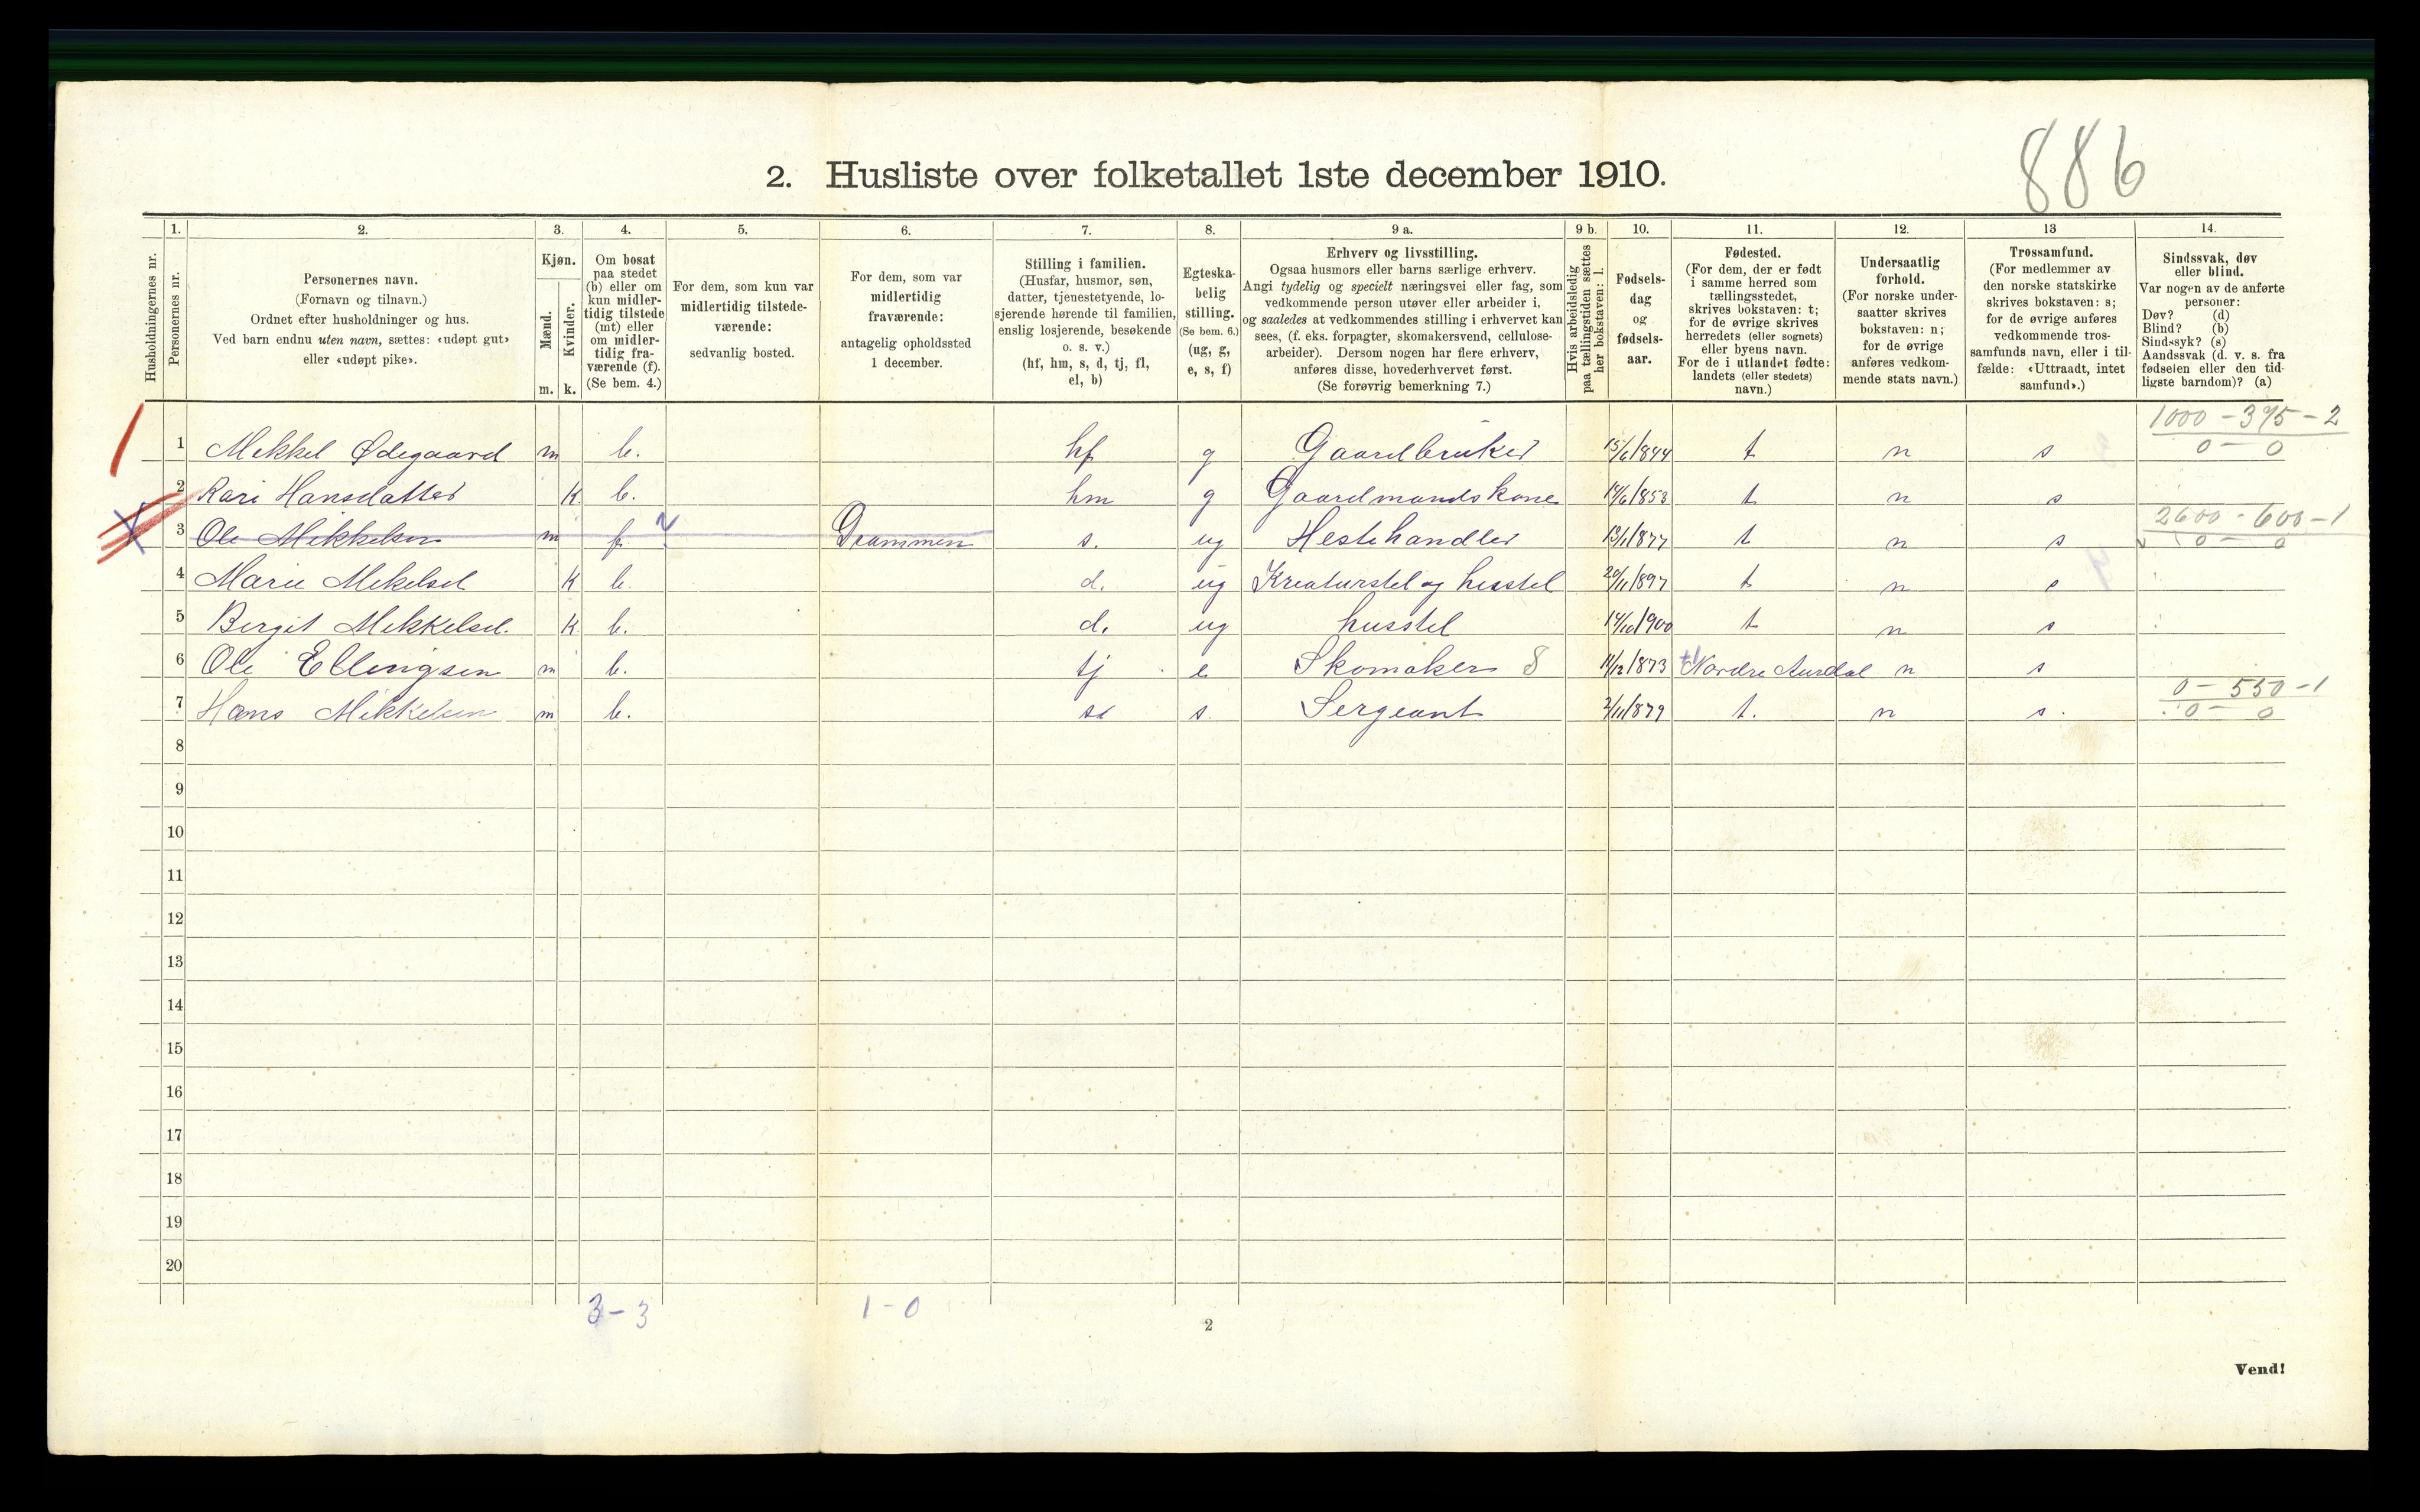 886
2. Husliste over folketallet 1ste december 1910.
Husholdningernes nr.
1.
Personernes nr.
2.
Personernes navn.
(Fornavn og tilnavn.)
Ordnet efter husholdninger og hus.
Ved barn endnu uten navn, sættes: «udøpt gut»
eller «udøpt pike».
3.
Kjøn.
Mænd.
Kvinder.
m. k.
4.
Om bosat
paa stedet
(b) eller om
kun midler-
tidig tilstede
(mt) eller
om midler-
tidig fra-
værende (f).
(Se bem. 4.)
5.
For dem, som kun var
midlertidig tilstede-
værende:
sedvanlig bosted.
6.
For dem, som var
midlertidig
fraværende:
antagelig opholdssted
1 december.
7.
Stilling i familien.
(Husfar, husmor, søn,
datter, tjenestetyende, lo-
sjerende hørende til familien,
enslig losjerende, besøkende
o. s. v.)
(hf, hm, s, d, tj, fl,
el, b)
8.
Egteska-
belig
stilling.
(Se bem. 6.)
(ug, g,
e, s, f)
9 a.
Erhverv og livsstilling.
Ogsaa husmors eller barns særlige erhverv.
Angi tydelig og specielt næringsvei eller fag, som
vedkommende person utøver eller arbeider i,
og saaledes at vedkommendes stilling i erhvervet kan
sees, (f. eks. forpagter, skomakersvend, cellulose-
arbeider). Dersom nogen har flere erhverv,
anføres disse, hovederhvervet først.
(Se forøvrig bemerkning 7.)
9 b.
Hvis arbeidsledig
paa tællingstiden sættes
her bokstaven: l.
10.
Fødsels-
dag
og
fødsels-
aar.
11.
Fødested.
(For dem, der er født
i samme herred som
tællingsstedet,
skrives bokstaven: t;
for de øvrige skrives
herredets (eller sognets)
eller byens navn.
For de i utlandet fødte:
landets (eller stedets)
navn.)
12.
Undersaatlig
forhold.
(For norske under-
saatter skrives
bokstaven: n;
for de øvrige
anføres vedkom-
mende stats navn.)
13
Trossamfund.
(For medlemmer av
den norske statskirke
skrives bokstaven: s;
for de øvrige anføres
vedkommende tros-
samfunds navn, eller i til-
fælde: «Uttraadt, intet
samfund».)
14.
Sindssvak, døv
eller blind.
Var nogen av de anførte
personer:
Døv? (d)
Blind? (b)
Sindssyk? (s)
Aandssvak (d. v. s. fra
fødselen eller den tid-
ligste barndom)? (a)
1000 - 395 - 2
1 Mekkel Ødegaard m b. hf g Gaardbruker 15/6/844 t n s 0 - 0
2 Kari Hansdatter k b. hm g Gaardmandskone 14/6/853 t n s
2600 - 600 - 1
3 Ole Mikkelsen m f. Drammen s. ug Hestehandler 13/1/877 t n s 0 - 0
4 Marie Mekelsd k b. d. ug Kreaturstel og husstel 20/11/897 t n s
5 Bergit Mekkelsd. k b. d. ug husstel 14/10/900 t n s
6 Ole Ellingsen m b. tj e Skomaker 8 11/12/873 Nordre Aurdal n s
0 - 550 - 1
7 Hans Mikkelsen m b. s. Sergeant 2/11/879 t. n s. 0 - 0
8
9
10
11
12
13
14
15
16
17
18
19
20
3 - 3 1 - 0
2
Vend!